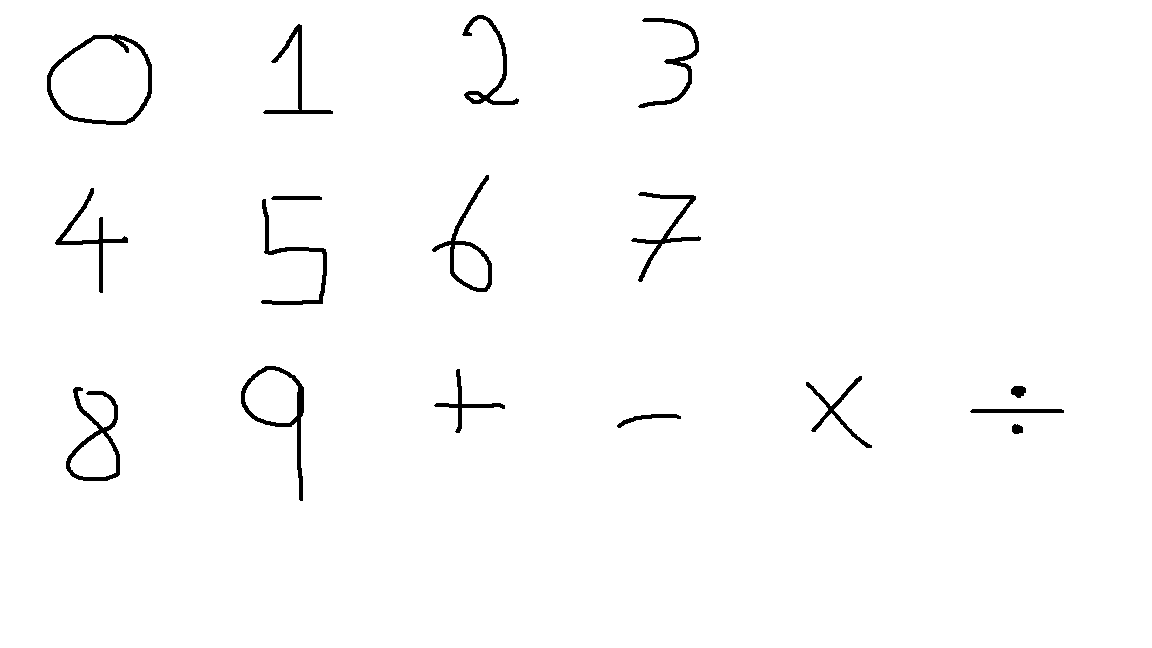 0 1 2 3
4 5 6 7
8 9 + - × ÷